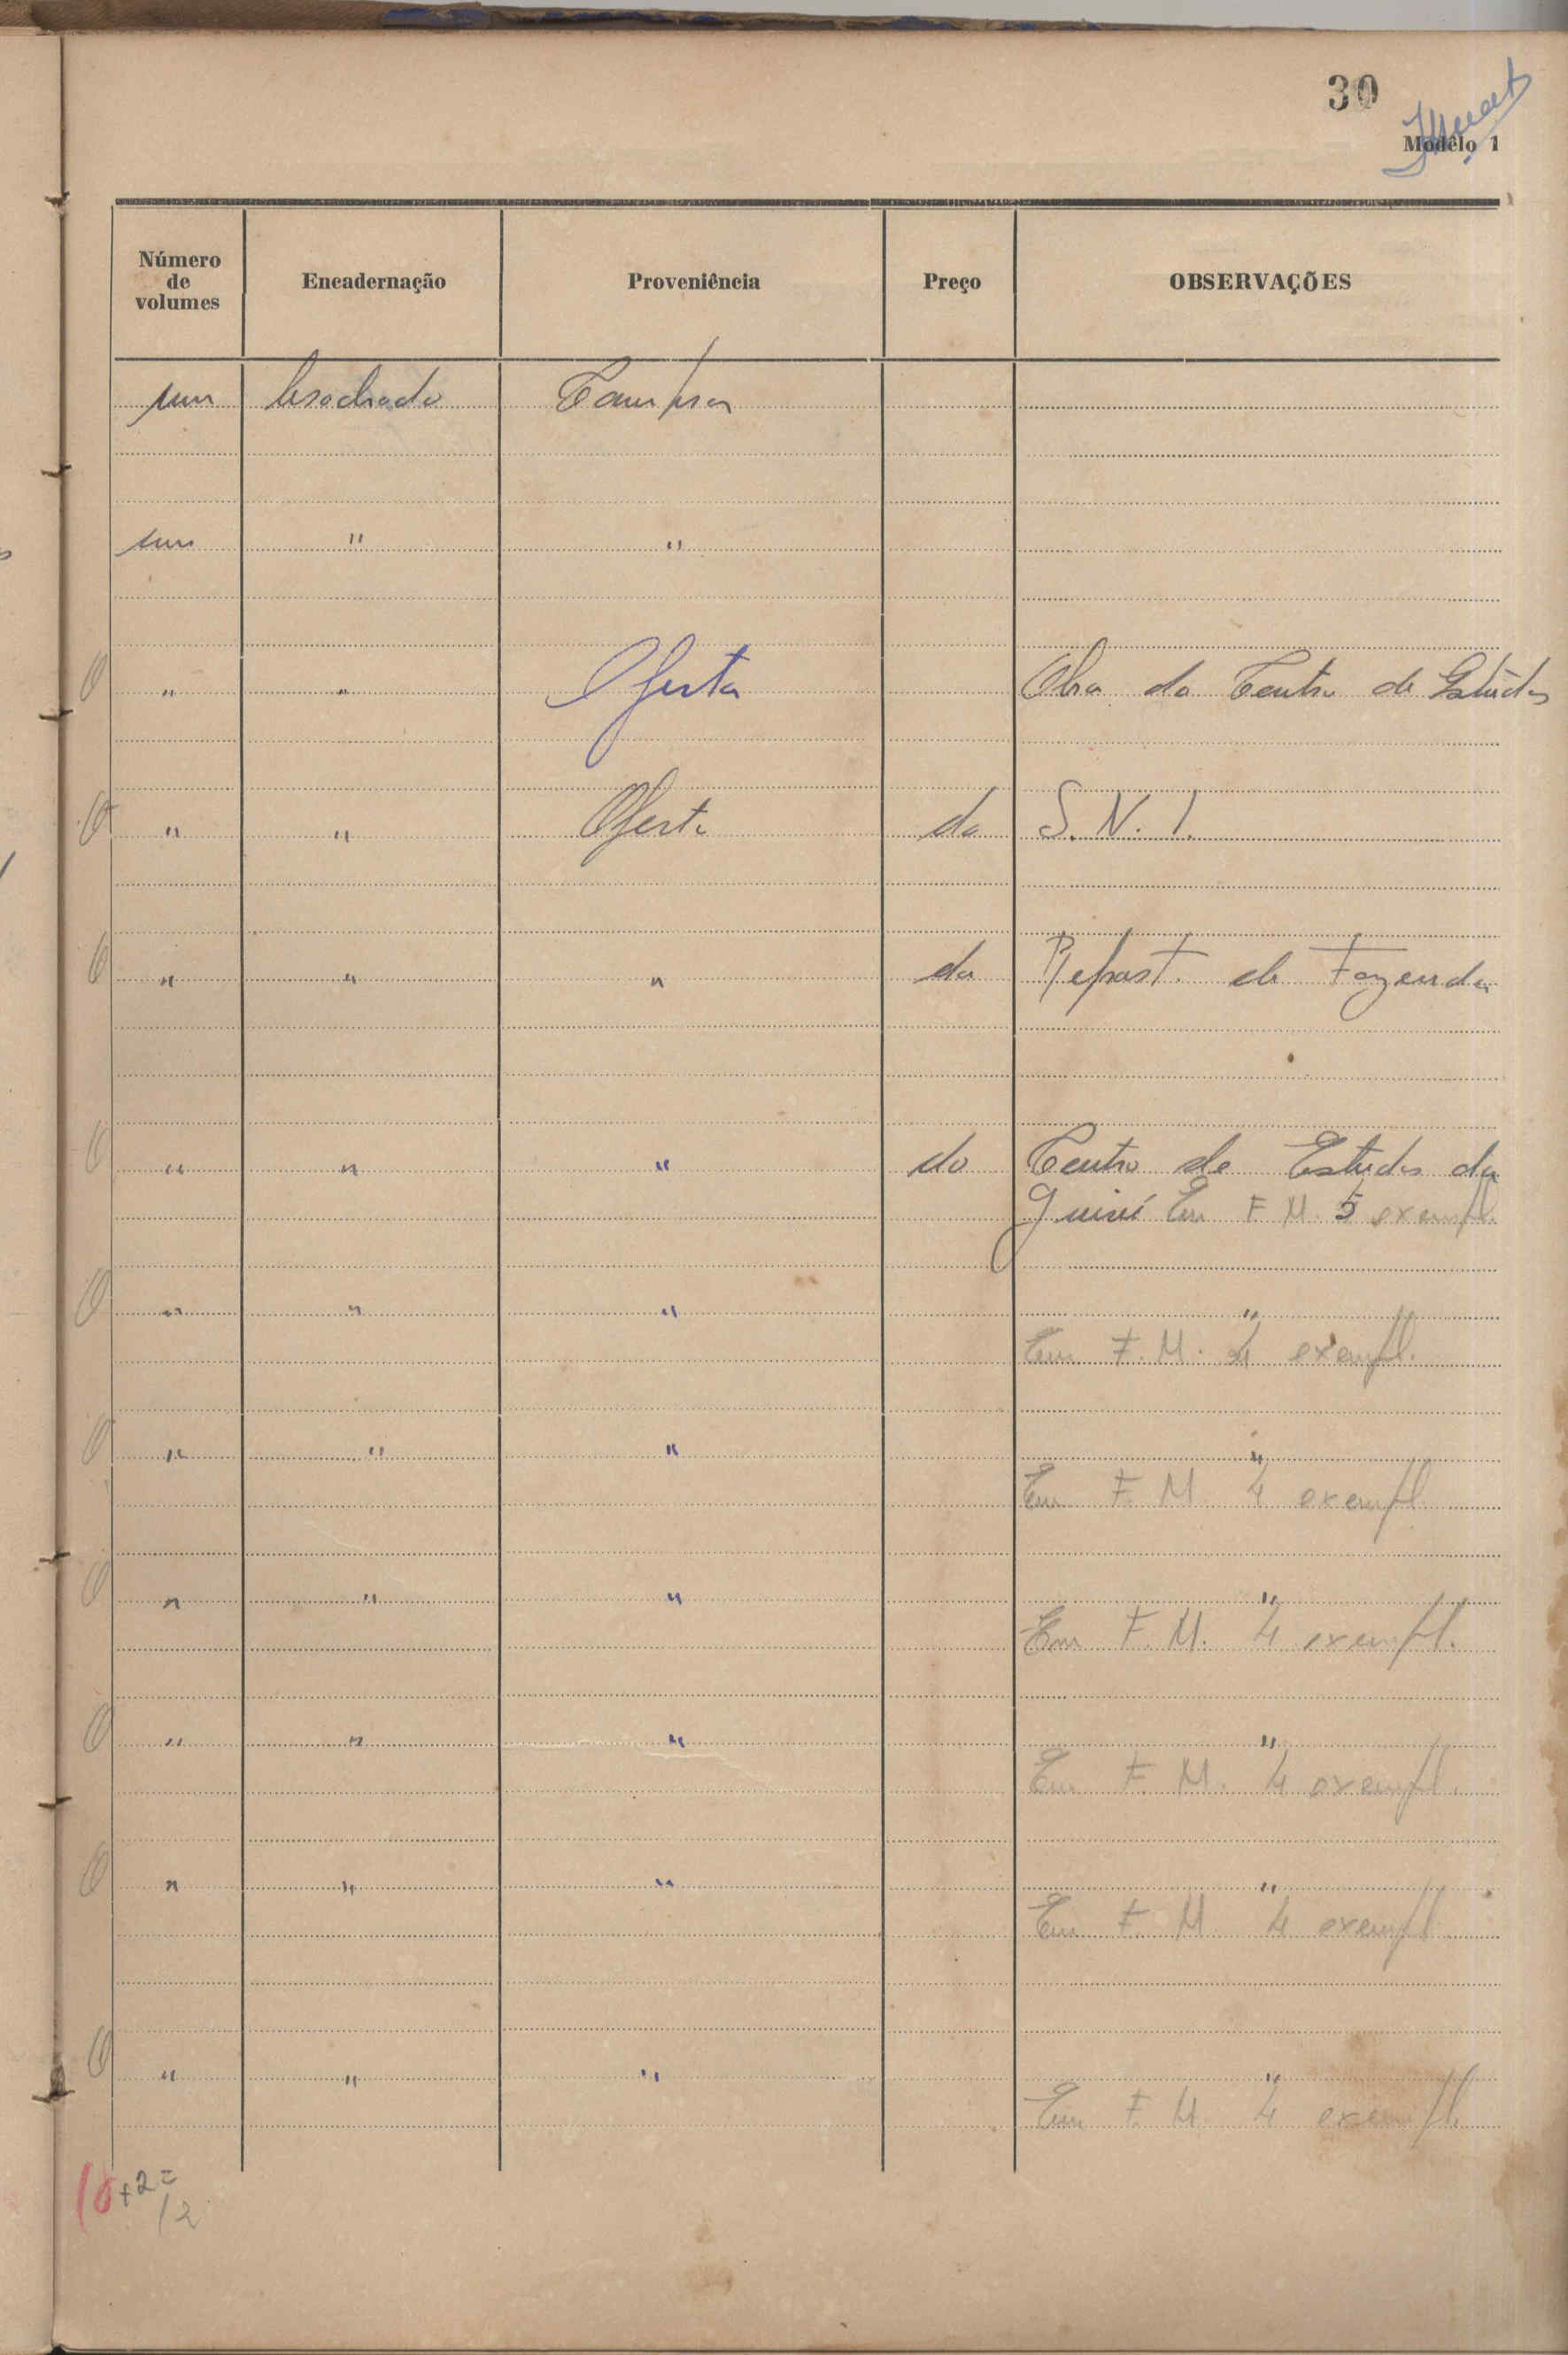 30
Modêlo 1
Número de volumes Encadernação Proveniência Preço OBSERVAÇÕES
um brochado Compra
um " "
" " Oferta Obra do Centro de Estudos
" " Oferta do S. N. I.
" " " da Repart. de Fazenda
" " " do Centro de Estudos da
Guiné Em F. M. 5 exempl.
" " " "
Em F. M. 4 exempl.
" " " "
Em F. M. 4 exempl.
" " " "
Em F. M. 4 exempl.
" " " "
Em F. M. 4 exempl.
" " " "
Em F. M. 4 exempl.
" " " "
Em F. M. 4 exempl.
10+2=
12